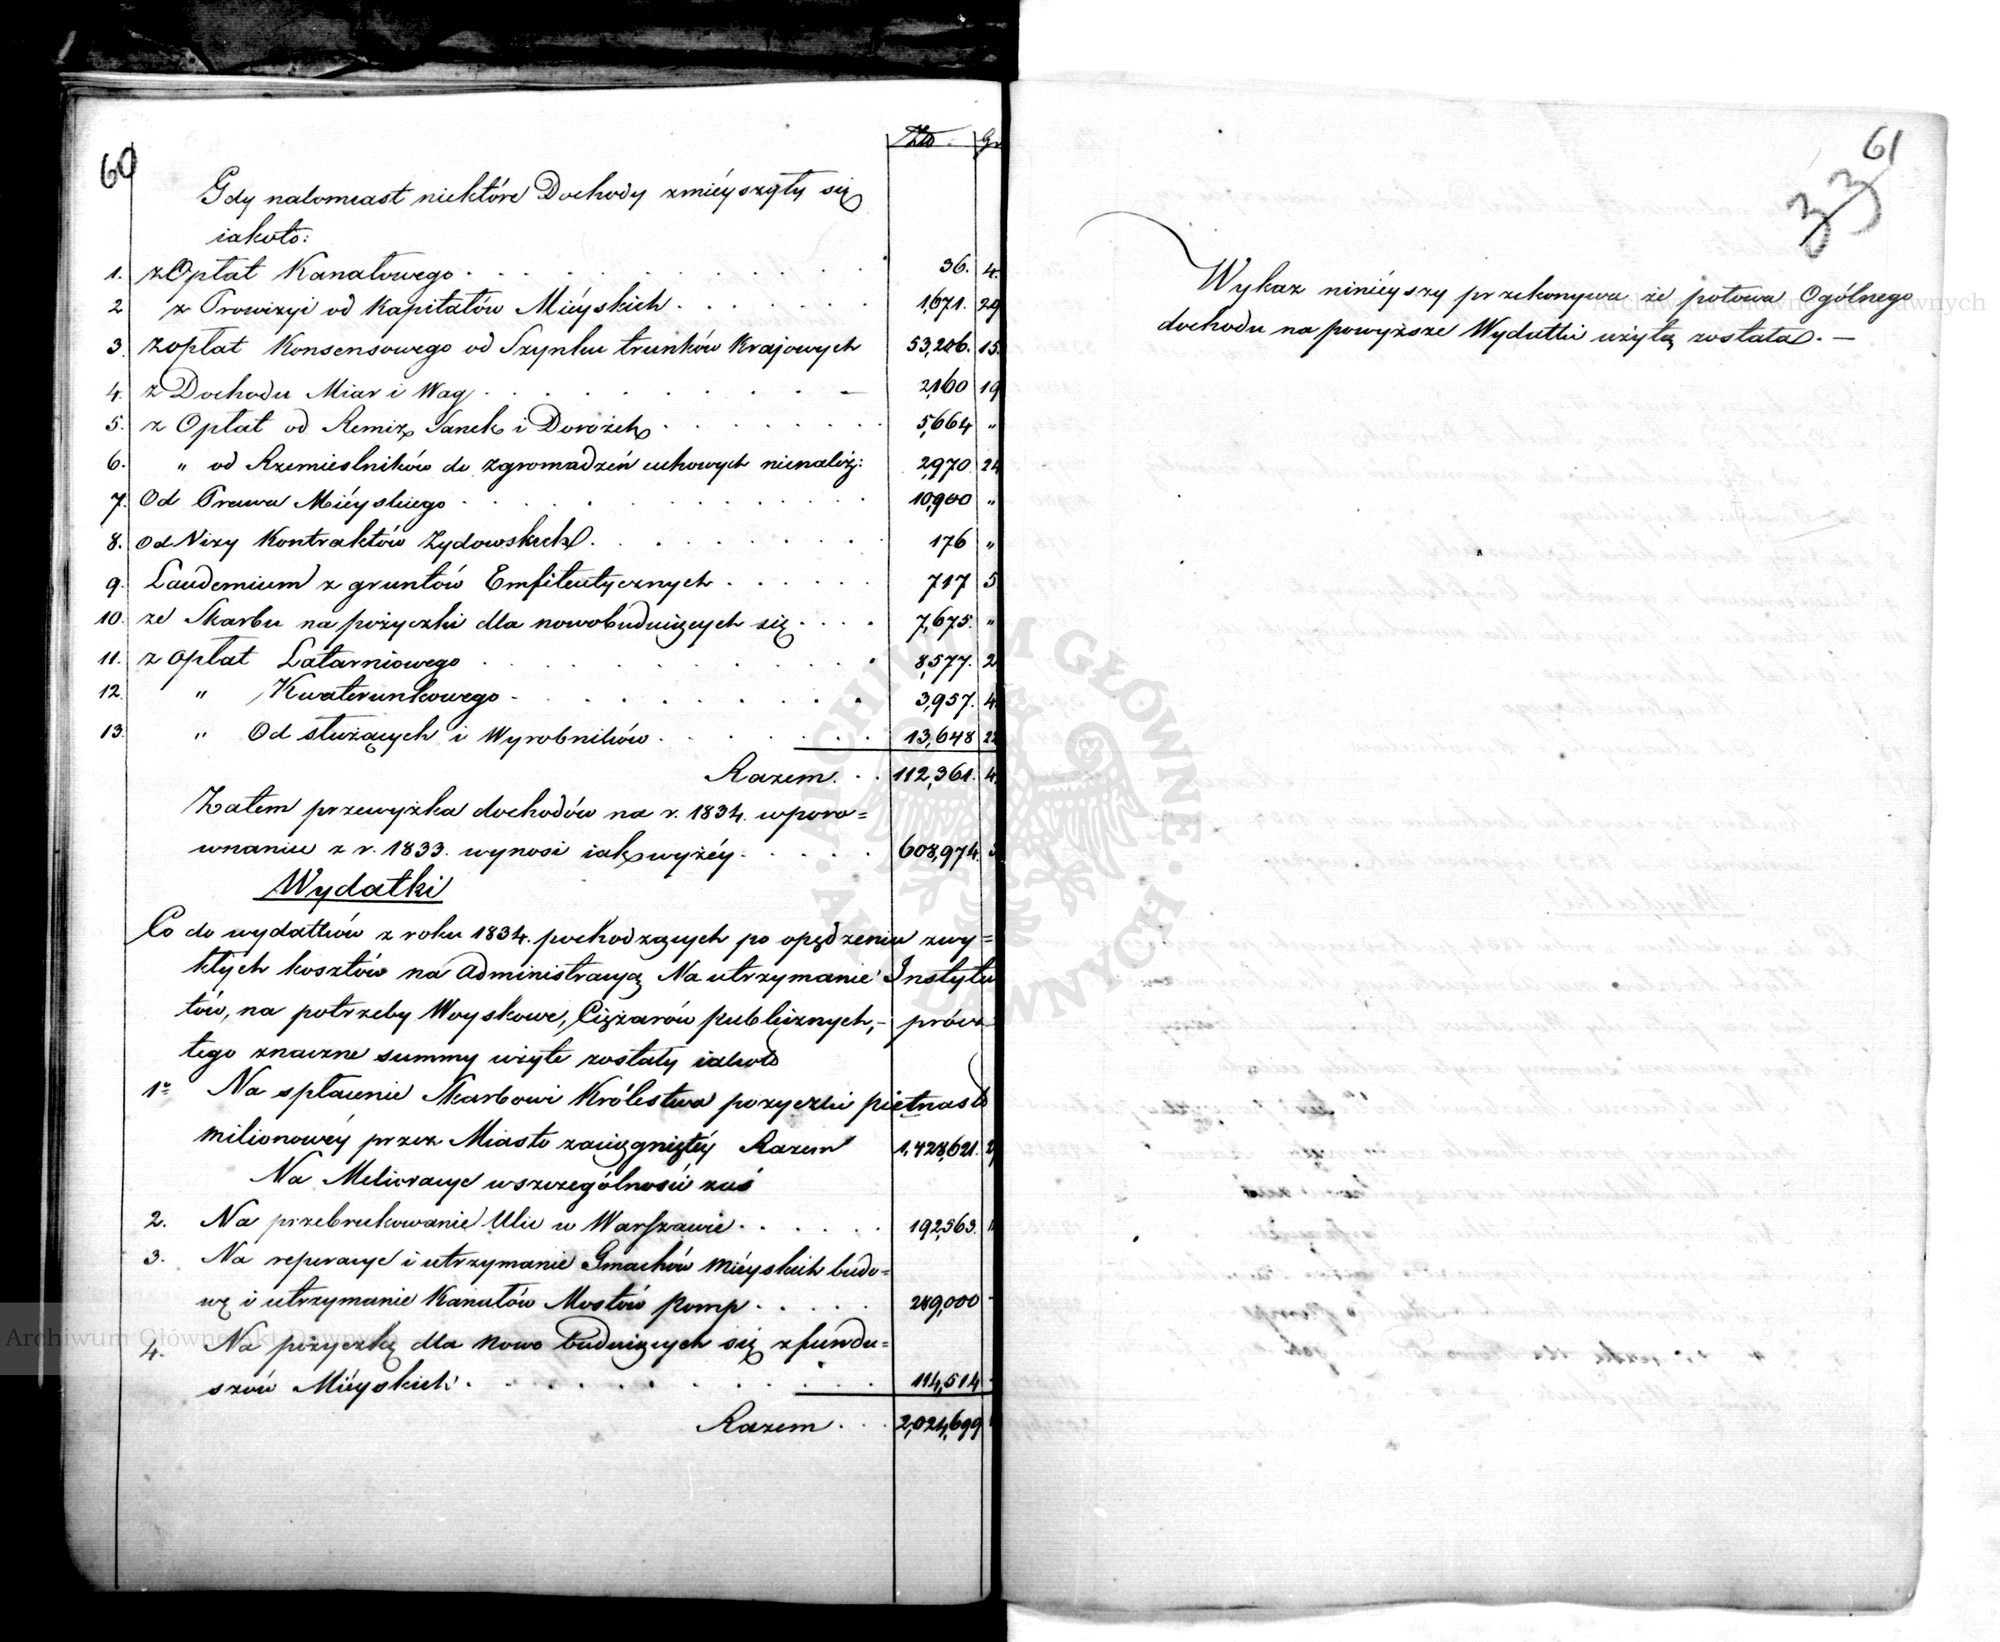 60
Złto. Gr
Gdy natomiast niektóre Dochody zmiéyszyły się
iakoto:
1. z Opłat Kanałowego . . . 36. 4.
2 z Prowizyi od Kapitałów Miéyskich . . . 1,671. 29
3. z opłat Konsensowego od Szynku trunków Krajowych 53,206. 15.
4. z Dochodu Miar i Wag . . . 2,160 19
5. z Opłat od Remiz, Sanek i Dorożek . . . 5,664 "
6. " od Rzemieslników do zgromadzeń cechowych nienależ: 2,970 24
7. Od Prawa Miéyskiego . . . 10,900 "
8. Od Vizy Kontraktów Zydowskich . . . 176 "
9. Laudemium z gruntów Emfiteutycznych . . . 717 5
10. ze Skarbu na pożyczki dla nowobuduiących się . . . 7,675. "
11. z opłat Latarniowego . . . 8,577. 2
12. " Kwaterunkowego . . . 3,957. 4.
13. " Od służących i Wyrobników . . . 13,648 22
Razem . . 112,361. 4.
Zatem przewyżka dochodów na r. 1834. w poro=
wnaniu z r. 1833. wynosi iak wyżéy . . . 608,974.
Wydatki
Co do wydatków z roku 1834. pochodzących po opędzeniu zwy=
kłych kosztów na administracyą Na utrzymanie Instytu
tów, na potrzeby Woyskowe, Ciężarów publicznych, – prócz
tego znaczne summy użyte zostały iakoto
1º Na spłacenie Skarbowi Królestwa pożyczki piętnasto
milionowéy przez Miasto zaciągniętéy Razem 1,428,621.
Na Melioracye w szczególności zaś
2. Na przebrukowanie Ulic w Warszawie . . . 192,563.
3. Na reperacye i utrzymanie Gmachów Miéyskich budo=
wę i utrzymanie Kanałów Mostów Pomp . . . 289,000
4. Na pożyczkę dla nowo buduiących się z fundu=
szów Miéyskich . . . 114,514
Razem . . . 2,024,699
61
33
Wykaz niniéyszy przekonywa że połowa Ogólnego
dochodu na powyższe Wydatki użytą została. —
Archiwum Główne Akt Dawnych
Archiwum Główne Akt Dawnych
ARCHIWUM GŁÓWNE AKT DAWNYCH